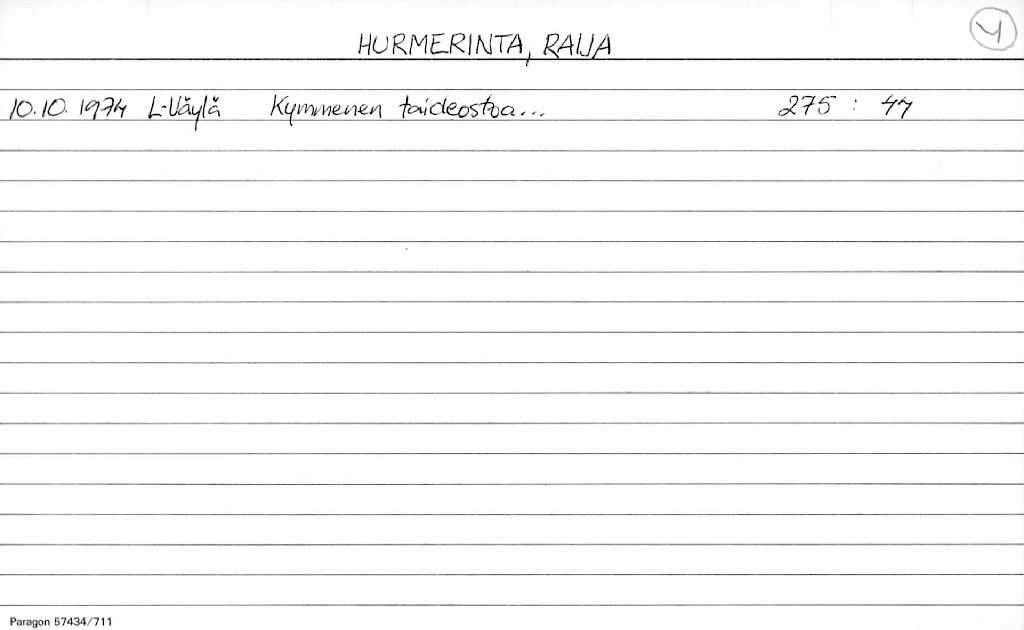 HURMERINTA, RAIJA
10.10.1974 L-Väylä Kymmenen taideostoa... 275 : 44
Paragon 57434/711